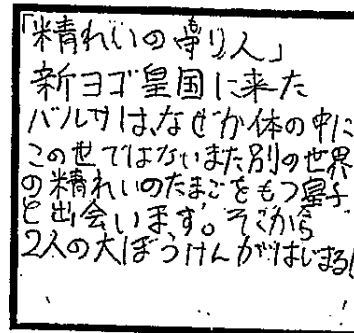 「精れいの守り人」
新ヨゴ皇国に来た
バルサは、なぜか体の中に
この世ではないまた別の世界
の精れいのたまごをもつ皇子
と出会います。そこから
2人の大ぼうけんがはじまる!